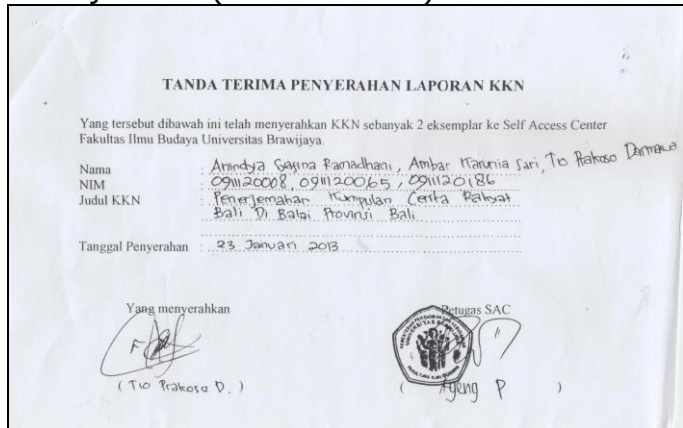 TANDA TERIMA PENYERAHAN LAPORAN KKN
Yang tersebut dibawah ini telah menyerahkan KKN sebanyak 2 eksemplar ke Self Access Center
Fakultas Ilmu Budaya Universitas Brawijaya.
Nama : Anindya Ramadhani, Ambar Karunia Sari, Tio Prakoso Darmawa
NIM : 0911120008, 0911120065, 0911120186
Judul KKN : Penerjemahan Kumpulan Cerita Rakyat
Bali Di Balai Provinsi Bali
Tanggal Penyerahan : 23 Januari 2013
Yang menyerahkan
Petugas SAC
(Tio Prakoso D.)
( Ageng P )